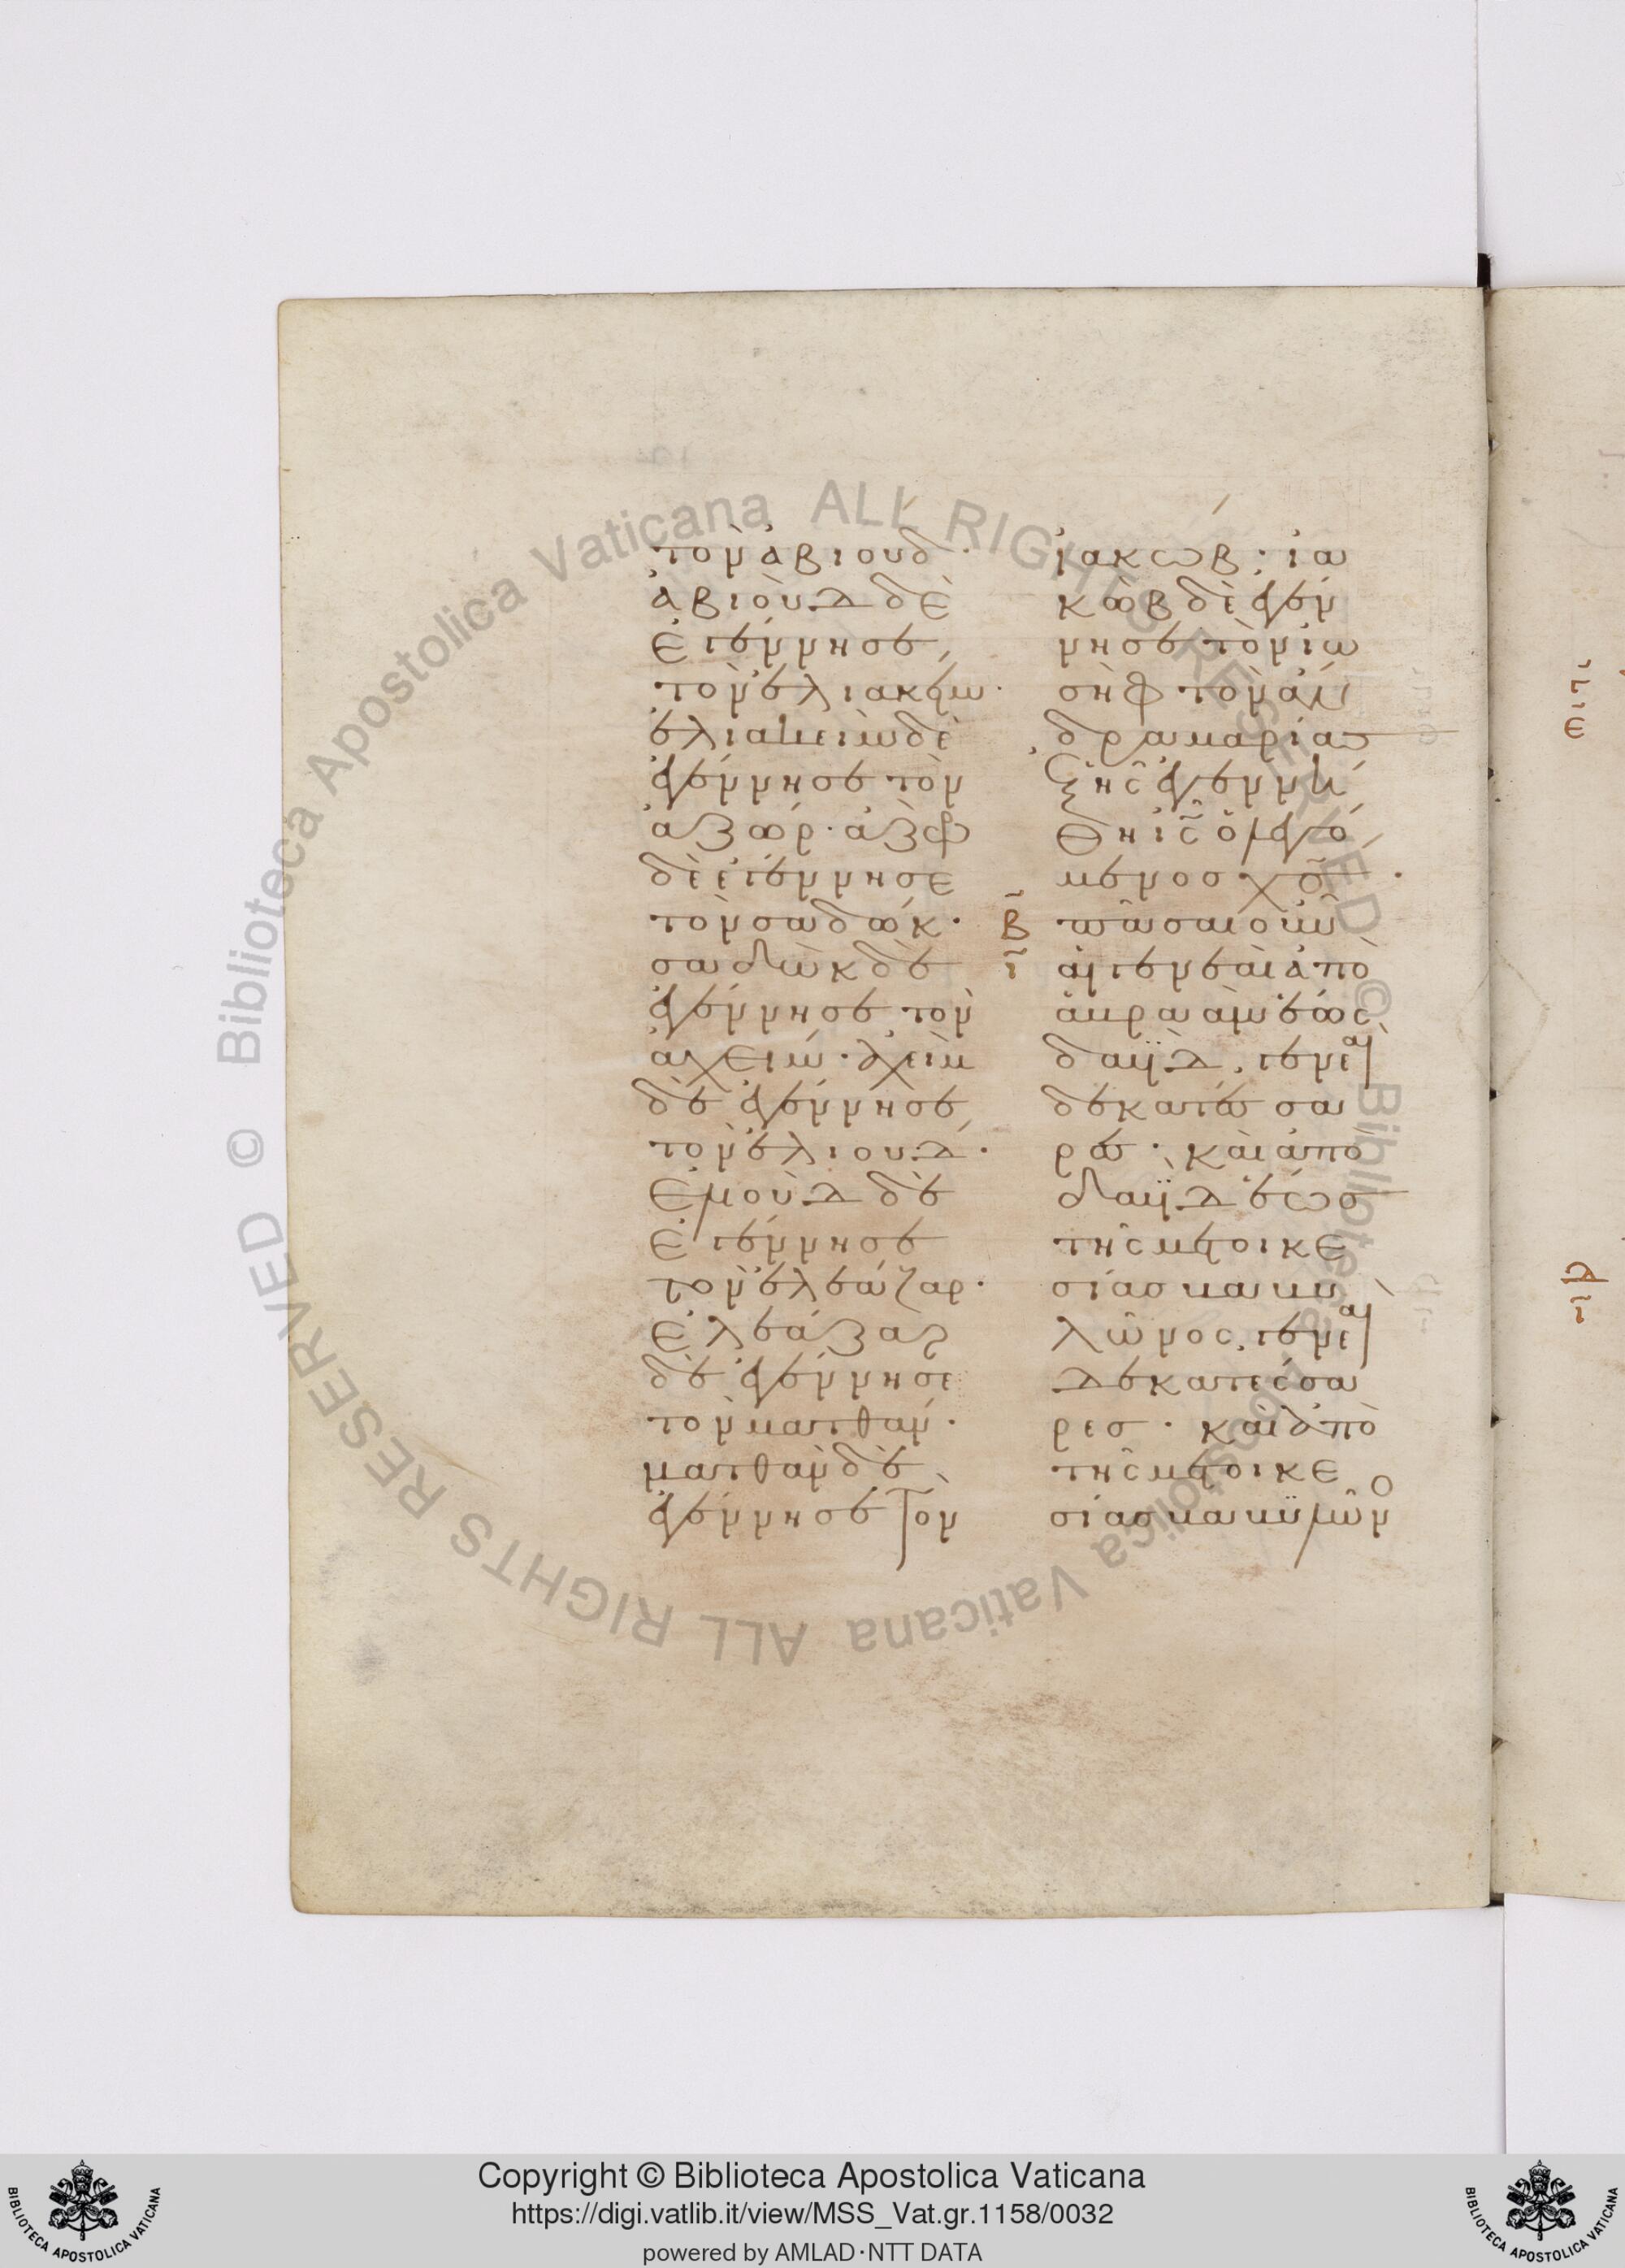 τὸν ἀβιούδ·
ἀβιοὺδ δὲ
ἐγέννησε
τὸν ἐλιακείμ·
ἐλιακεὶμ δὲ
ἐγέννησε τὸν
ἀζώρ· ἀζὼρ
δὲ ἐγέννησε
τὸν σαδώκ·
σαδὼκ δὲ
ἐγέννησε τὸν
ἀχείμ· ἀχεὶμ
δὲ ἐγέννησε
τὸν ἐλιούδ·
ἐλιοὺδ δὲ
ἐγέννησε
τὸν ἐλεάζαρ·
ἐλεάζαρ
δὲ ἐγέννησε
τὸν ματθάν·
ματθὰν δὲ
ἐγέννησε τὸν
ἰακώβ· ἰα
κὼβ δὲ ἐγέν
νησε τὸν ἰω
σὴφ τὸν ἄν
δρα μαρίας
ἐξ ἧς ἐγεννή
θη ἰς ὁ λεγό
μενος χς·
β πᾶσαι οὖν
ι αἱ γενεαὶ ἀπὸ
ἀβραὰμ ἕως
δαυῒδ, γενεαὶ
δεκατέσσα
ρες· καὶ ἀπὸ
δαυῒδ ἕως
τῆς μετοικε
σίας βαβυ
λῶνος, γενεαὶ
δεκατέσσα
ρες· καὶ ἀπὸ
τῆς μετοικε
σίας βαβυλῶνο
Copyright © Biblioteca Apostolica Vaticana
https://digi.vatlib.it/view/MSS_Vat.gr.1158/0032
powered by AMLAD·NTT DATA
BIBLIOTECA APOSTOLICA VATICANA
BIBLIOTECA APOSTOLICA VATICANA
Biblioteca Apostolica Vaticana ALL RIGHTS RESERVED © Biblioteca Apostolica Vaticana ALL RIGHTS RESERVED ©